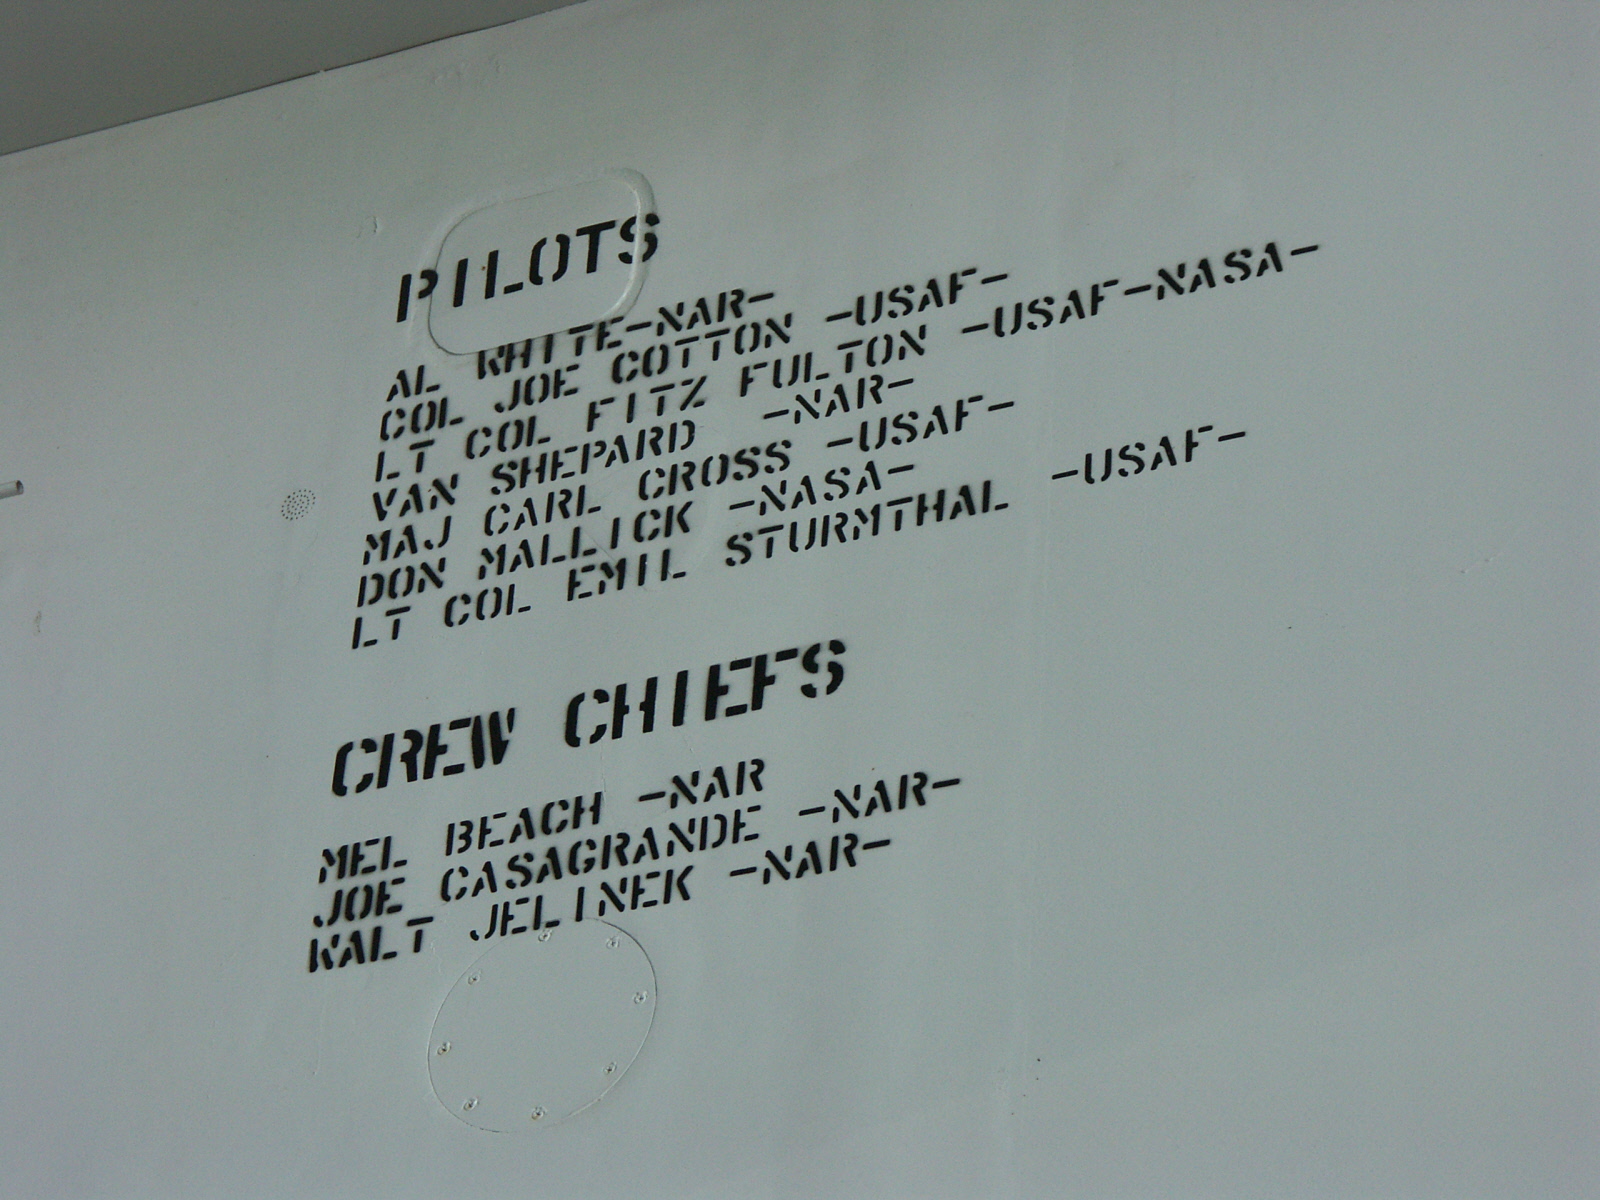 PILOTS
AL WHITE-NAR-
COL JOE COTTON -USAF-
LT COL FITZ FULTON -USAF-NASA-
VAN SHEPARD -NAR-
MAJ CARL CROSS -USAF-
DON MALLICK -NASA-
LT COL EMIL STURMTHAL -USAF-
CREW CHIEFS
MEL BEACH -NAR
JOE CASAGRANDE -NAR-
WALT JELINEK -NAR-